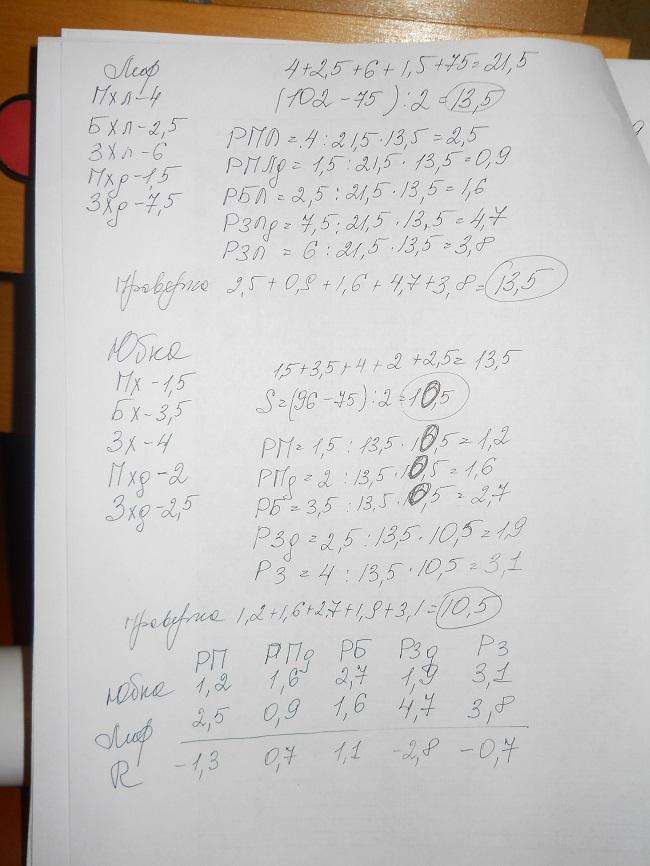 Лиф
4+2,5+6+1,5+75=21,5
Пхл-4
(102-75):2=13,5
Бхл-2,5
РПЛ=4:21,5·13,5=2,5
Зхл-6
РПЛд=1,5:21,5·13,5=0,9
Пхд-1,5
РБЛ=2,5:21,5·13,5=1,6
Зхд-7,5
РЗЛд=7,5:21,5·13,5=4,7
РЗЛ=6:21,5·13,5=3,8
Проверка 2,5+0,9+1,6+4,7+3,8=13,5
Юбка
1,5+3,5+4+2+2,5=13,5
Пх-1,5
S=(96-75):2=10,5
Бх-3,5
Зх-4
РП=1,5:13,5·10,5=1,2
Пхд-2
РПд=2:13,5·10,5=1,6
Зхд-2,5
РБ=3,5:13,5·10,5=2,7
РЗд=2,5:13,5·10,5=1,9
РЗ=4:13,5·10,5=3,1
Проверка 1,2+1,6+2,7+1,9+3,1=10,5
РП РПд РБ РЗд РЗ
Юбка 1,2 1,6 2,7 1,9 3,1
Лиф 2,5 0,9 1,6 4,7 3,8
R -1,3 0,7 1,1 -2,8 -0,7